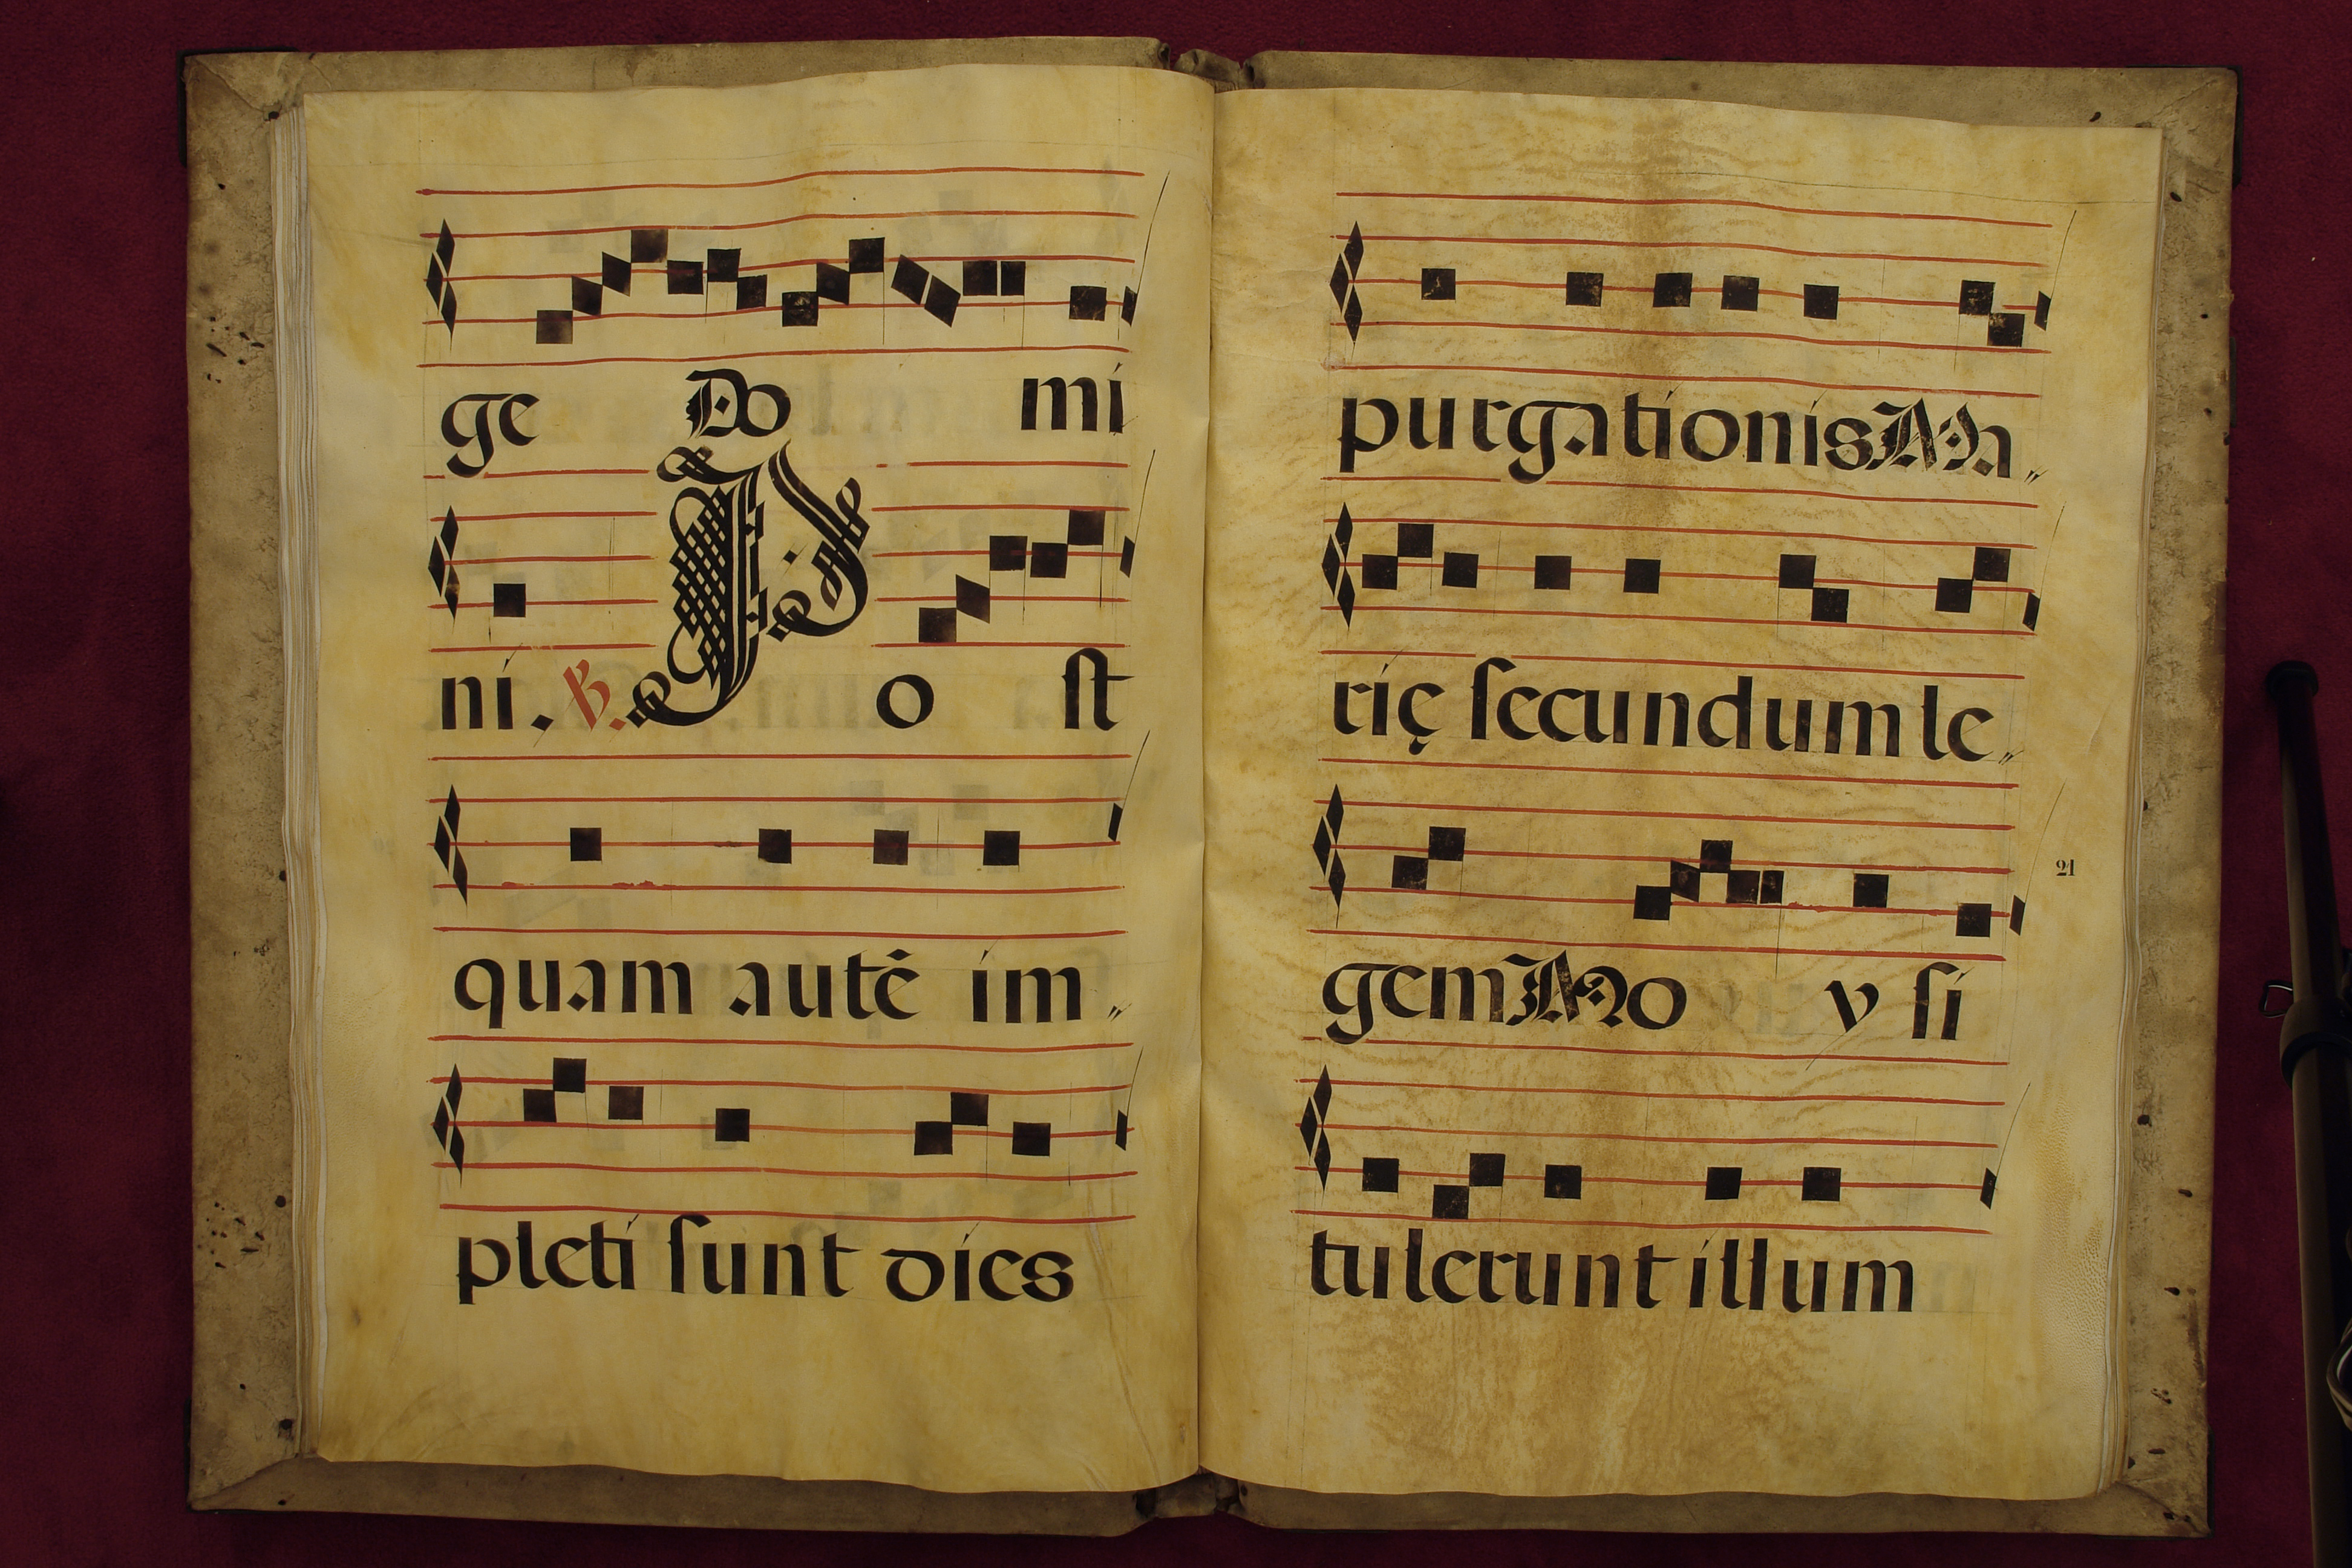 ge Do mi
ni. ℟. P o st
quam autē im„
pleti sunt dies
purgationis Ma„
rię secundum le„
gem Mo y si
21
tulerunt illum